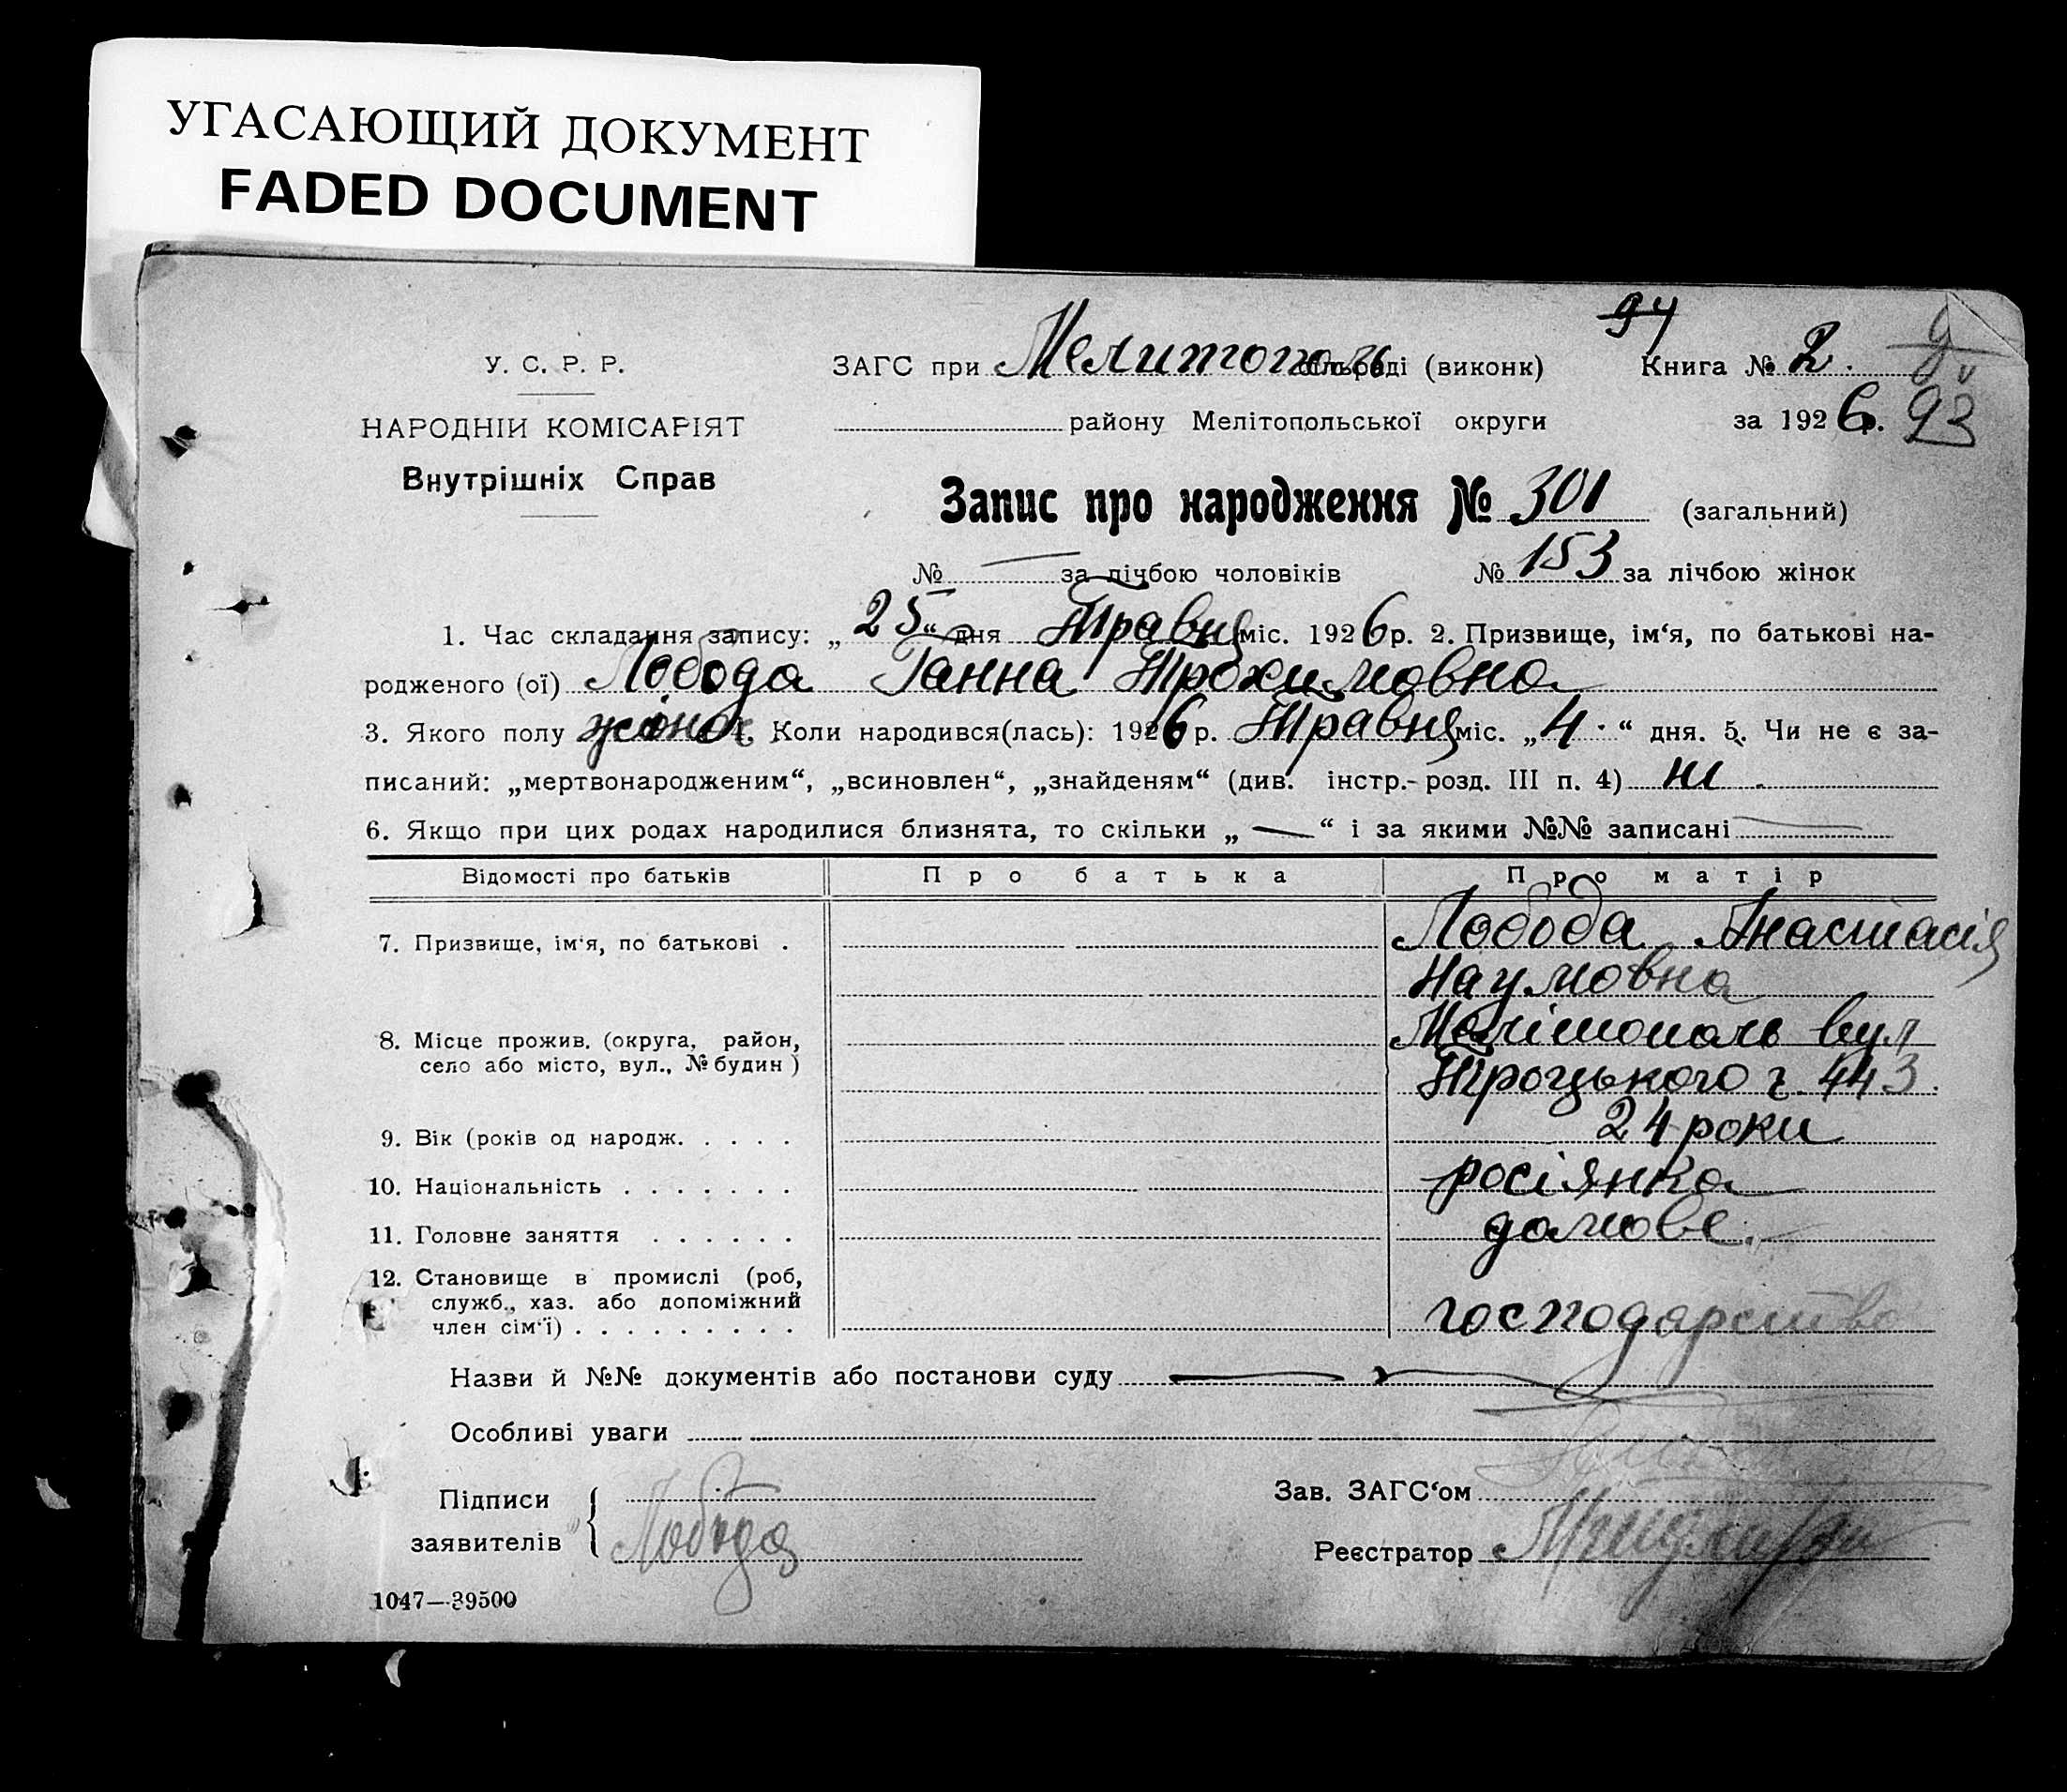 УГАСАЮЩИЙ ДОКУМЕНТ
FADED DOCUMENT
94
У. С. Р. Р.
ЗАГС при Мелитополь сільраді (виконк)
Книга № 2.
НАРОДНІЙ КОМІСАРІЯТ
району Мелітопольської округи
за 1926 р. 93
Внутрішніх Справ
Запис про народження № 301 (загальний)
№ — за лічбою чоловіків № 153 за лічбою жінок
1. Час складання запису: „25“ дня Травня міс. 1926 р. 2. Призвище, ім‘я, по батькові на-
родженого (ої) Лобода Ганна Трохимовна
3. Якого полу жіноч. 4. Коли народився(лась): 1926 р. Травня міс. „4“ дня. 5. Чи не є за-
писаний: „мертвонародженим“, „всиновлен“, „знайденям“ (див. інстр.- розд. III п. 4) ні.
6. Якщо при цих родах народилися близнята, то скільки „—“ і за якими №№ записані —
Відомості про батьків Про батька Про матір
7. Призвище, ім‘я, по батькові . Лобода Анастасія
Наумовна
8. Місце прожив. (округа, район, Мелітополь вул
село або місто, вул., № будин ) Троцького ч. 443.
9. Вік (років од народж. . . . . 24 роки
10. Національність . . . . . . . росіянка
11. Головне заняття . . . . . . домове.
12. Становище в промислі (роб,
служб., хаз. або допоміжний господарство
член сім‘ї) . . . . . . . . .
Назви й №№ документів або постанови суду —
Особливі уваги
Підписи
заявителів Лобода
Зав. ЗАГС‘ом
Реєстратор
1047—39500